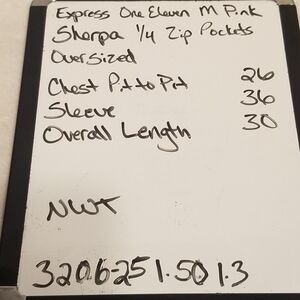 Express One Eleven M Pink
Sherpa 1/4 Zip Pockets
OverSized
Chest Pit to Pit 26
Sleeve 36
Overall Length 30
NWT
3206-25 1.50 1.3